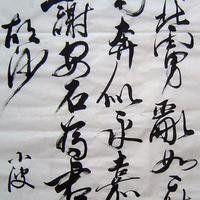 北虜亂如麻
南奔似永嘉
謝安石為君
胡沙
小